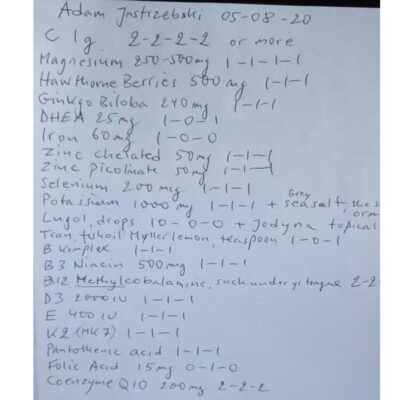 Adam Jastrzebski 05-08-20
C 1g 2-2-2-2 or more
Magnesium 250-500mg 1-1-1-1
Hawthorne Berries 500 mg 1-1-1
Ginkgo Biloba 240mg 1-1-1
DHEA 25mg 1-0-1
Iron 60mg 1-0-0
Zinc chelated 50mg 1-1-1
Zinc picolinate 50mg 1-1-1
Selenium 200 mcg 1-1-1
Grey
Potassium 1000mg 1-1-1 + sea salt,
Lugol, drops 10-0-0 + Jodyna topical
Tran, fishoil Myller lemon, teaspoon 1-0-1
B Komplex 1-1-1
B3 Niacin 500mg 1-1-1
B12 Methylcobalamine, suck under ys tongue 2-2-
D3 2000 IU 1-1-1
E 400 IU 1-1-1
K2 (MK7) 1-1-1
Pantothenic acid 1-1-1
Folic Acid 15mg 0-1-0
Coenzyme Q10 200mg 2-2-2